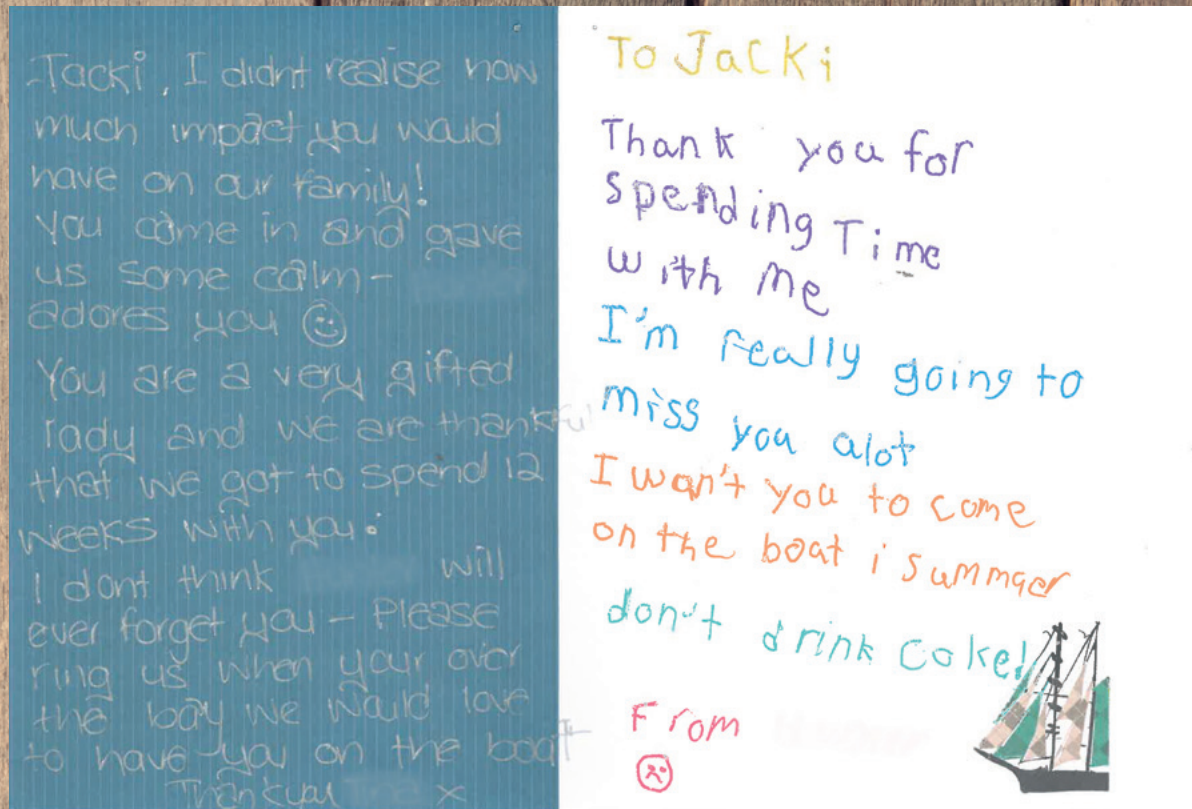 Jacki, I didnt realise how
much impact you would
have on our family!
You came in and gave
us some calm -
adores you
You are a very gifted
lady and we are thankful
that we got to spend 12
weeks with you.
I dont think will
ever forget you - Please
ring us when your over
the bay we would love
to have you on the boat
Thankyou x
To Jacki
Thank you for
spending Time
with me
I'm really going to
miss you alot
I wan't you to come
on the boat i summer
don't drink coke!
From